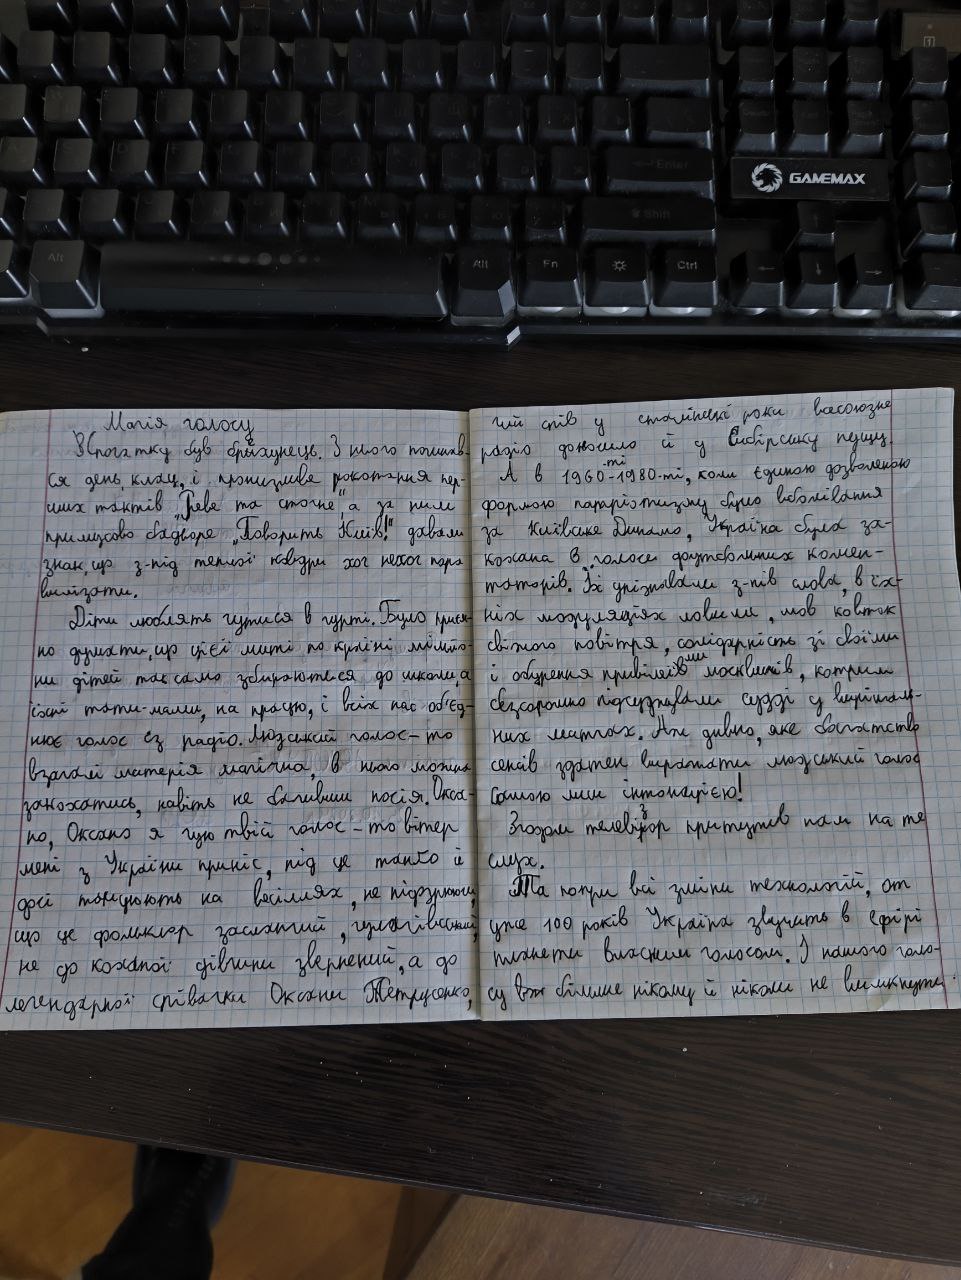 Alt
Alt
Fn
Ctrl
Enter
Shift
GAMEMAX
Магія голосу
Спочатку був брехунець. З нього починав-
ся день, клац, і пронизливе рокотання пер-
ших тактів "Реве та стогне", а за ним
примусово бадьоре "Говорить Київ!" давали
знак, що з-під теплої ковдри хоч нехоч пора
вилізати.
Діти люблять чутися в гурті. Було приєм-
но думати, що цієї миті по країні мільйо-
ни дітей так само збираються до школи, а
їхні тати-мами, на працю, і всіх нас об'єд-
нює голос із радіо. Людський голос - то
взагалі матерія магічна, в нього можна
закохатись, навіть не бачивши носія. Окса-
но, Оксано я чую твій голос - то вітер
мені з України приніс, під це танго й
досі танцюють на весіллях, не підозрюючи,
що це фольклор засланчий,
не до коханої дівчини звернений, а до
легендарної співачки Оксани Петрусенко,
чий спів у сталінські роки всесоюзне
радіо доносило й у Сибірську пущу.
А в 1960-ті-1980-ті, коли єдиною дозволеною
формою патріотизму було вболівання
за Київське Динамо, Україна була за-
кохана в голоси футбольних комен-
таторів. Їх упізнавали з-пів слова, в їх-
ніх модуляціях ловили, мов ковток
свіжого повітря, солідарність зі своїми
і обурення привілеями москвичів, котрим
безсоромно підсуджували судді у вирішаль-
них матчах. Аж дивно, яке багатство
сенсів здатен виражати людський голос
самою лиш інтонацією!
Згодом телевізор притупив нам на те
слух.
Та попри всі зміни технологій, от
уже 100 років Україна звучить в ефірі
планети власним голосом. І нашого голо-
су вже більше нікому й ніколи не вимкнути.